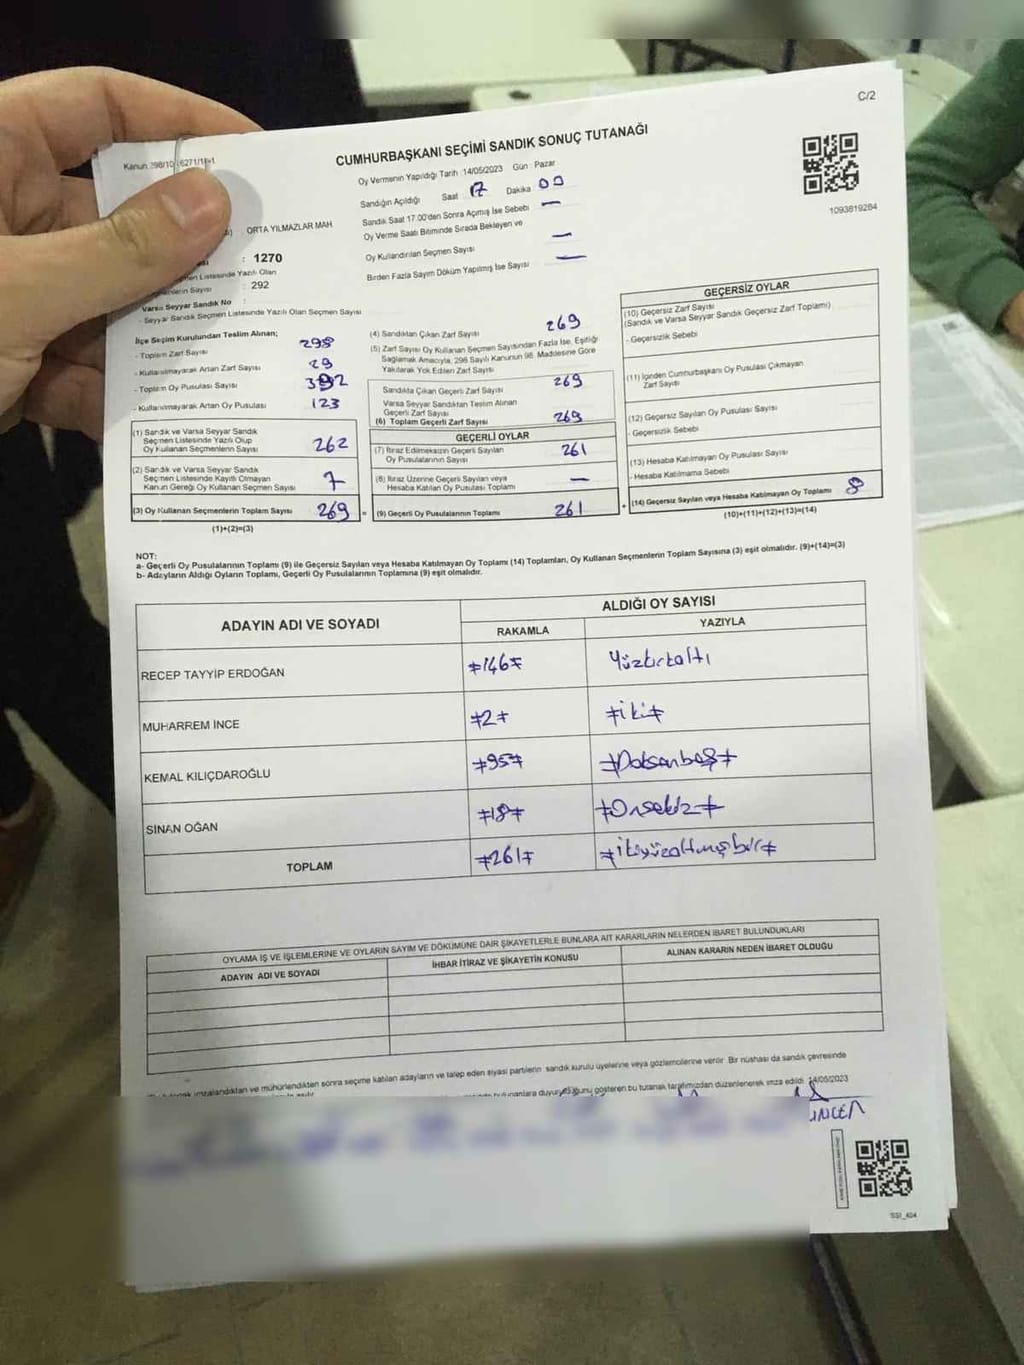 C/2
CUMHURBAŞKANI SEÇİMİ SANDIK SONUÇ TUTANAĞI
Oy Vermenin Yapıldığı Tarih :14/05/2023 Gün : Pazar
Sandığın Açıldığı Saat 17 Dakika 00
Sandık Saat 17.00'den Sonra Açımış İse Sebebi —
Oy Verme Saati Bitiminde Sırada Bekleyen ve
Oy Kullandırılan Seçmen Sayısı —
Birden Fazla Sayım Döküm Yapılmış İse Sayısı —
1093819284
ORTA YILMAZLAR MAH
: 1270
Listesinde Yazılı Olan
Sayısı : 292
Varsa Seyyar Sandık No :
- Seyyar Sandık Seçmen Listesinde Yazılı Olan Seçmen Sayısı
İlçe Seçim Kurulundan Teslim Alınan;
- Toplam Zarf Sayısı 298
- Kullanılmayarak Artan Zarf Sayısı 29
- Toplam Oy Pusulası Sayısı 392
- Kullanılmayarak Artan Oy Pusulası 123
(1) Sandık ve Varsa Seyyar Sandık
Seçmen Listesinde Yazılı Olup
Oy Kullanan Seçmenlerin Sayısı 262
(2) Sandık ve Varsa Seyyar Sandık
Seçmen Listesinde Kayıtlı Olmayan
Kanun Gereği Oy Kullanan Seçmen Sayısı 7
(3) Oy Kullanan Seçmenlerin Toplam Sayısı 269
(1)+(2)=(3)
(4) Sandıktan Çıkan Zarf Sayısı 269
(5) Zarf Sayısı Oy Kullanan Seçmen Sayısından Fazla İse, Eşitliği
Sağlamak Amacıyla, 298 Sayılı Kanunun 98. Maddesine Göre
Yakılarak Yok Edilen Zarf Sayısı
Sandıkta Çıkan Geçerli Zarf Sayısı 269
Varsa Seyyar Sandıktan Teslim Alınan
Geçerli Zarf Sayısı
(6) Toplam Geçerli Zarf Sayısı 269
GEÇERLİ OYLAR
(7) İtiraz Edilmeksizin Geçerli Sayılan
Oy Pusulalarının Sayısı 261
(8) İtiraz Üzerine Geçerli Sayılan veya
Hesaba Katılan Oy Pusulası Toplamı —
= (9) Geçerli Oy Pusulalarının Toplamı 261
GEÇERSİZ OYLAR
(10) Geçersiz Zarf Sayısı
(Sandık ve Varsa Seyyar Sandık Geçersiz Zarf Toplamı)
- Geçersizlik Sebebi
(11) İçinden Cumhurbaşkanı Oy Pusulası Çıkmayan
Zarf Sayısı
(12) Geçersiz Sayılan Oy Pusulası Sayısı
- Geçersizlik Sebebi
(13) Hesaba Katılmayan Oy Pusulası Sayısı
- Hesaba Katılmama Sebebi
+ (14) Geçersiz Sayılan veya Hesaba Katılmayan Oy Toplamı 8
(10)+(11)+(12)+(13)=(14)
NOT:
a- Geçerli Oy Pusulalarının Toplamı (9) ile Geçersiz Sayılan veya Hesaba Katılmayan Oy Toplamı (14) Toplamları, Oy Kullanan Seçmenlerin Toplam Sayısına (3) eşit olmalıdır. (9)+(14)=(3)
b- Adayların Aldığı Oyların Toplamı, Geçerli Oy Pusulalarının Toplamına (9) eşit olmalıdır.
ADAYIN ADI VE SOYADI ALDIĞI OY SAYISI
RAKAMLA YAZIYLA
RECEP TAYYİP ERDOĞAN ≠146≠ Yüzkırkaltı
MUHARREM İNCE ≠2≠ ≠iki≠
KEMAL KILIÇDAROĞLU ≠95≠ ≠Doksanbeş≠
SİNAN OĞAN ≠18≠ ≠Onsekiz≠
TOPLAM ≠261≠ ≠ikiyüzaltmışbir≠
OYLAMA İŞ VE İŞLEMLERİNE VE OYLARIN SAYIM VE DÖKÜMÜNE DAİR ŞİKAYETLERLE BUNLARA AİT KARARLARIN NELERDEN İBARET BULUNDUKLARI
ADAYIN ADI VE SOYADI İHBAR İTİRAZ VE ŞİKAYETİN KONUSU ALINAN KARARIN NEDEN İBARET OLDUĞU
imzalandıktan ve mühürlendikten sonra seçime katılan adayların ve talep eden siyasi partilerin sandık kurulu üyelerine veya gözlemcilerine verilir. Bir nüshası da sandık çevresinde
gösteren bu tutanak tarafımızdan düzenlenerek imza edildi. 14/05/2023